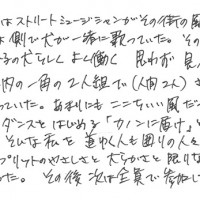 はストリートミュージシャンがその街の
は側で犬が一緒に歌っていた。その
子の犬らしくよく働く 思わず見
内の一角の2人組で(人間2人)さ
っていた。あまりにもここちいい風だ
ダンスをはじめる「カノンに届け」と
そんな私を道ゆく人も囲りの人々
プリットのやさしさと大らかさと限りな
た。その後次は全員で参加し